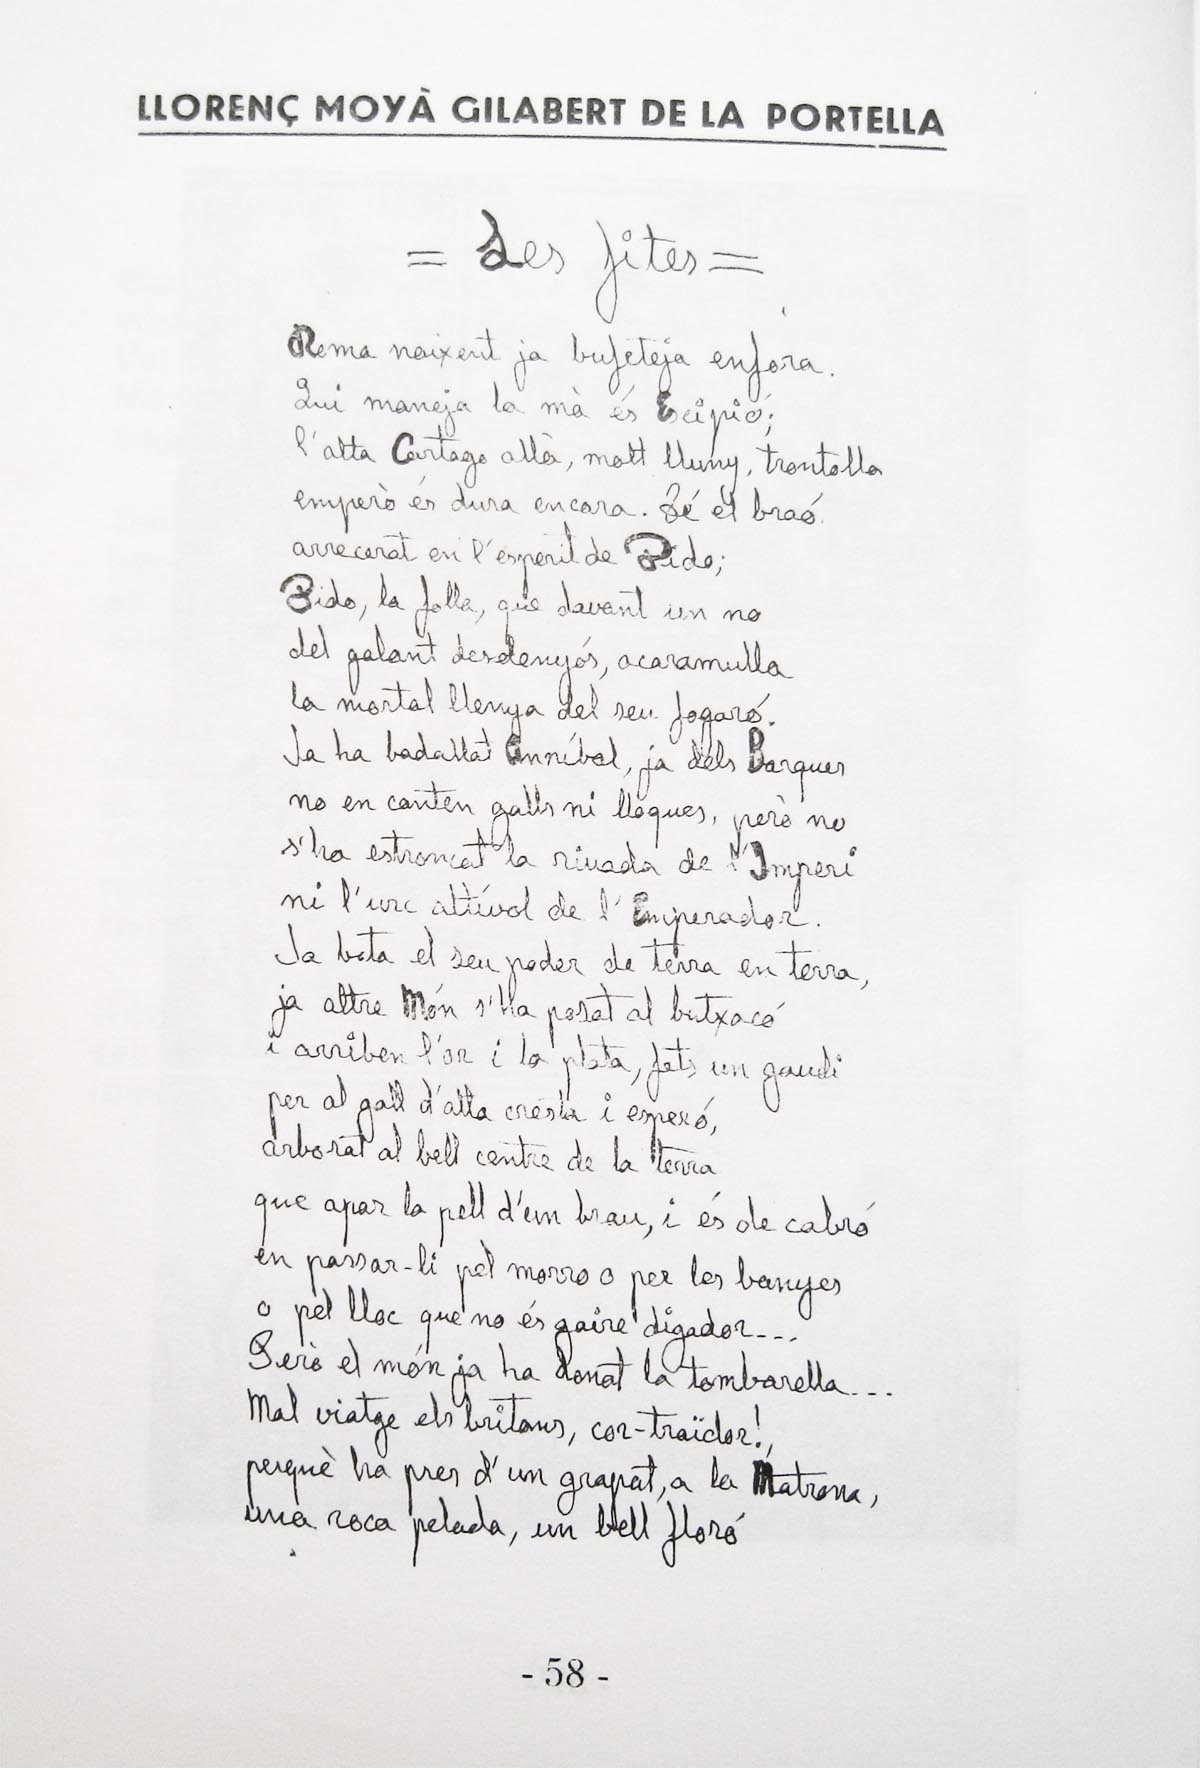 LLORENÇ MOYÀ GILABERT DE LA PORTELLA
= Les fites =
Roma naixent ja bufeteja enfora.
Qui maneja la mà és Escipió;
l'alta Cartago allà, molt lluny, trontolla
emperò és dura encara. Té el braó
arrecerat en l'esperit de Dido;
Dido, la folla, que davant un no
del galant desdenyós, acaramulla
la mortal llenya del seu fogaró.
Ja ha badallat Anníbal, ja dels Barques
no en canten galls ni lloques, però no
s'ha estroncat la riuada de l'Imperi
ni l'urc altívol de l'Emperador.
Ja bota el seu poder de terra en terra,
ja altre Món s'ha posat al butxacó
i arriben l'or i la plata, fets un gaudi
per al gall d'alta cresta i esperó,
arborat al bell centre de la terra
que apar la pell d'un brau, i és de cabró
en passar-li pel morro o per les banyes
o pel lloc que no és gaire digador...
Però el món ja ha donat la tombarella...
Mal viatge els britans, cor-traïdor!,
perquè ha pres d'un grapat, a la Matrona,
una roca pelada, un bell floró
- 58 -